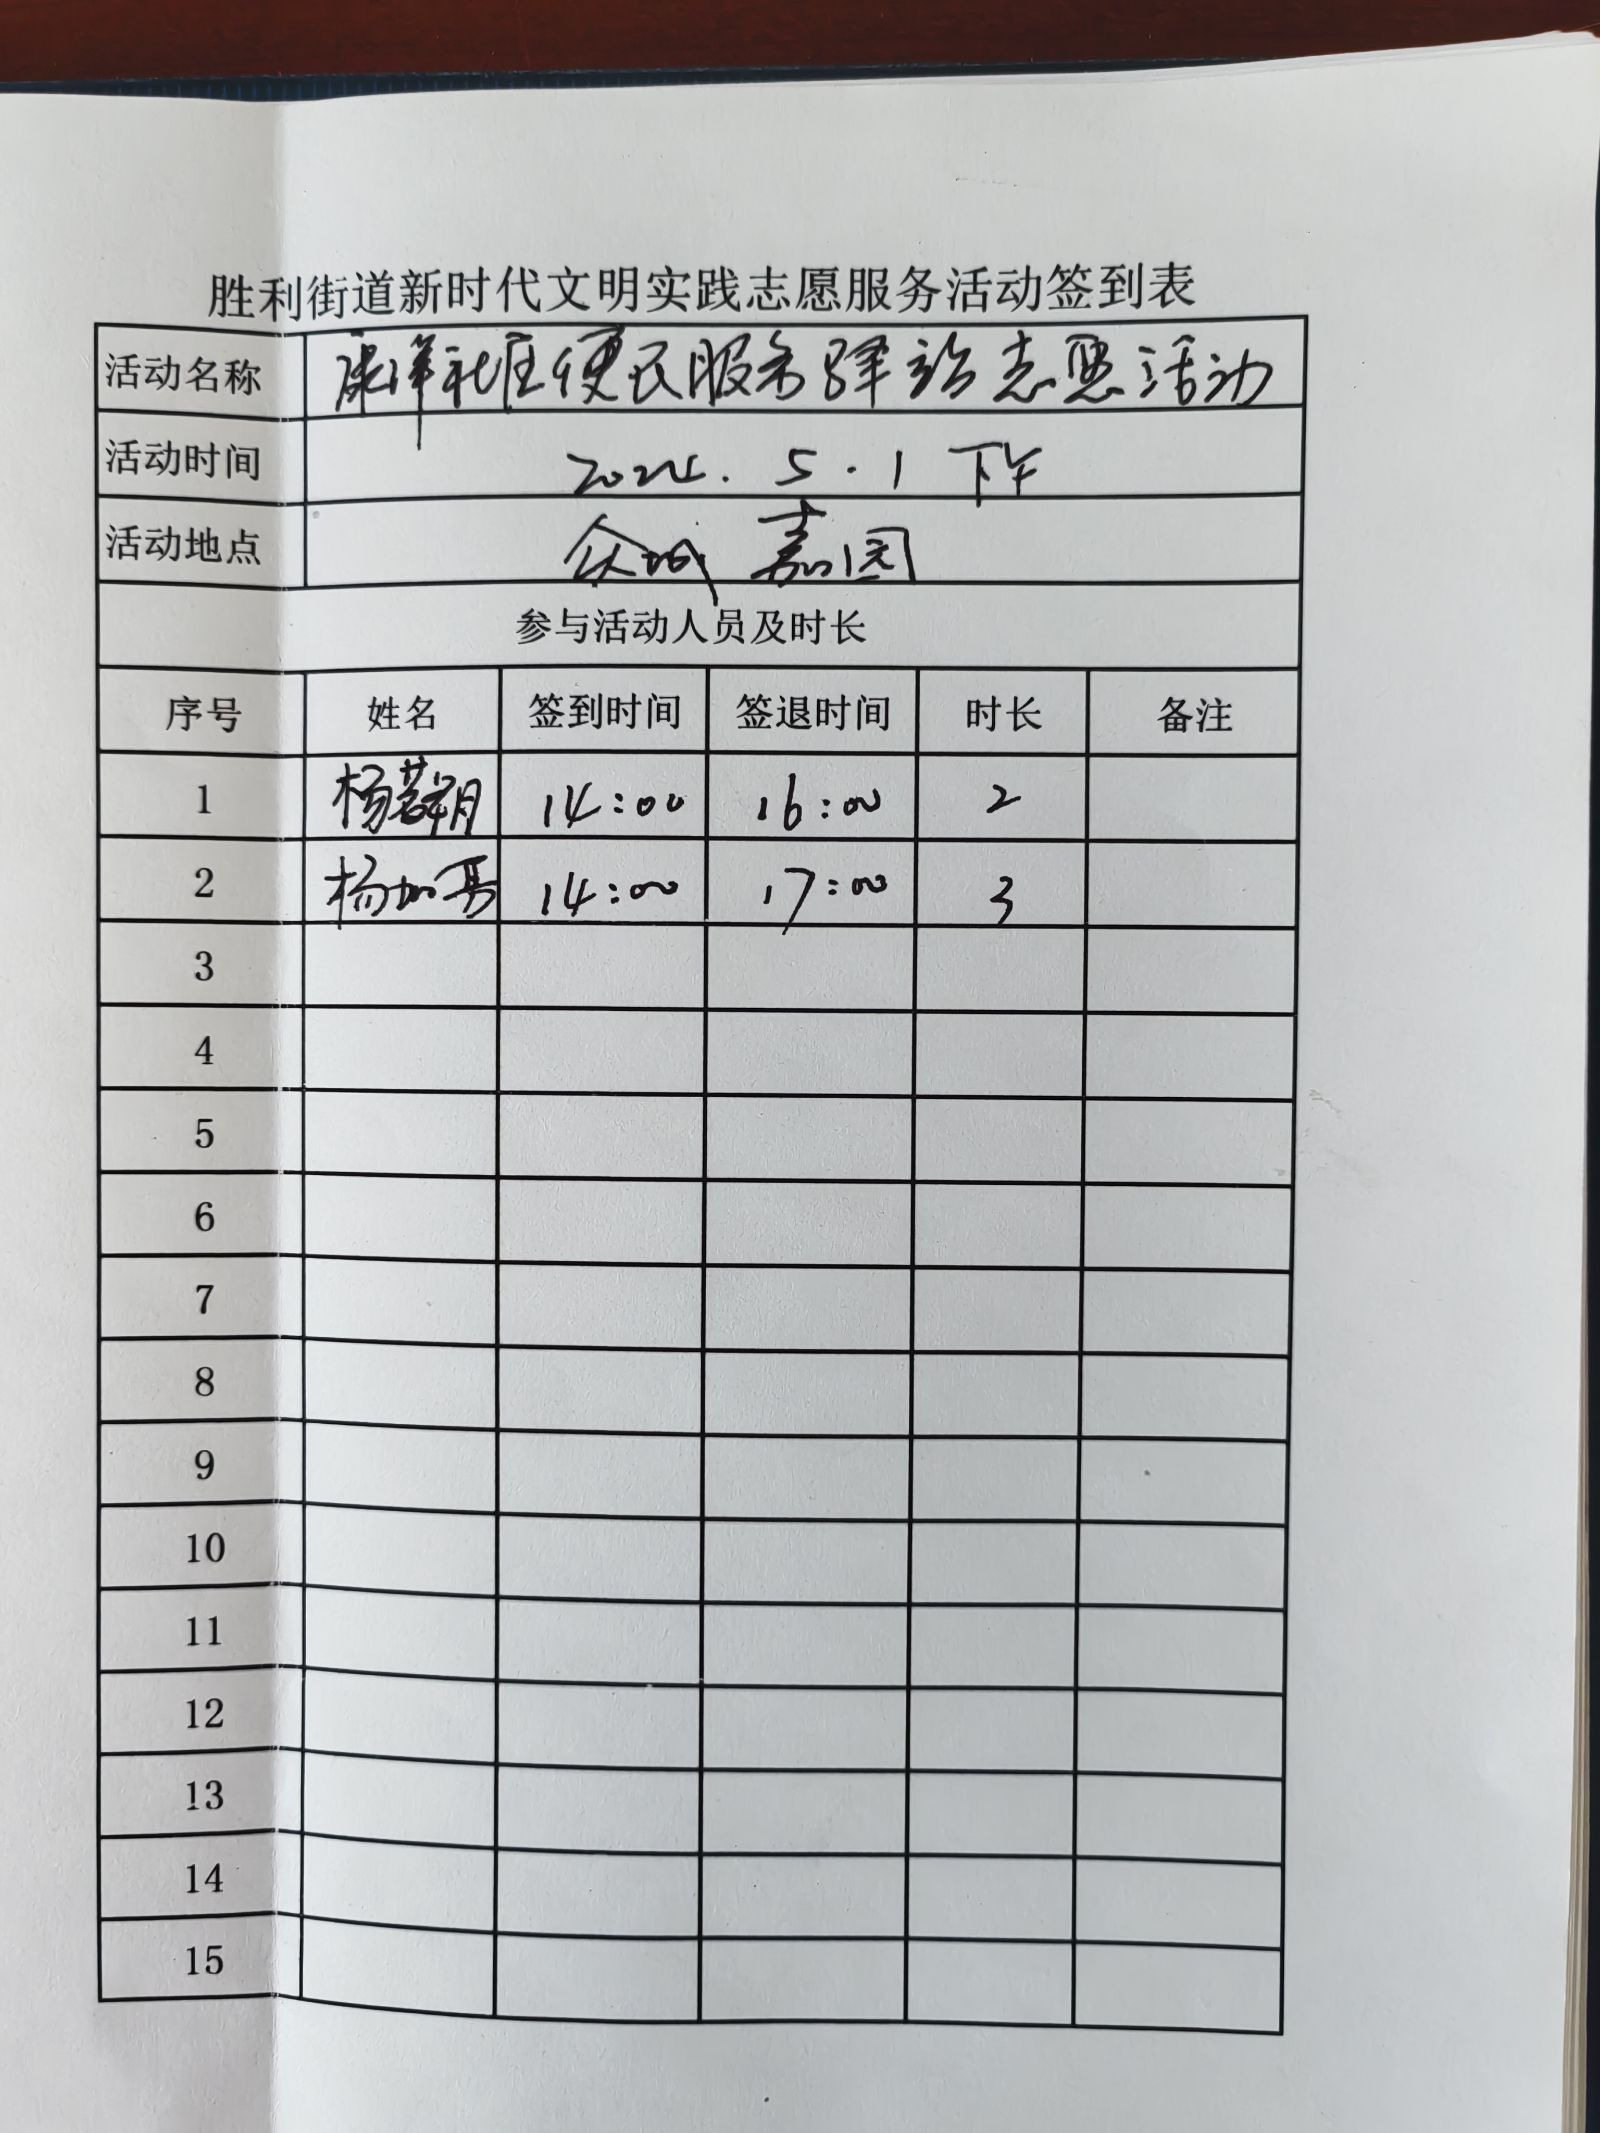 胜利街道新时代文明实践志愿服务活动签到表
活动名称 康洋社区便民服务驿站志愿活动
活动时间 2024.5.1 下午
活动地点 众城嘉园
参与活动人员及时长
序号 姓名 签到时间 签退时间 时长 备注
1 杨 14:00 16:00 2
2 杨加 14:00 17:00 3
3
4
5
6
7
8
9
10
11
12
13
14
15